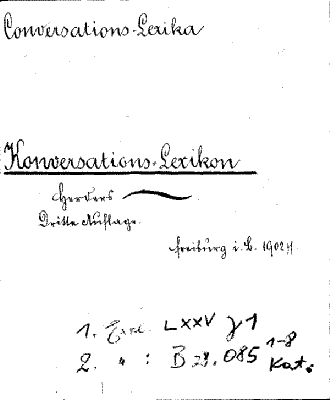 Conversations-Lexika
Konversations-Lexikon
Herders
Dritte Auflage.
Freiburg i. B. 1902 ff
1. Exel. LXXV γ 1
2. " : B 28. 085 1-8
Kat.